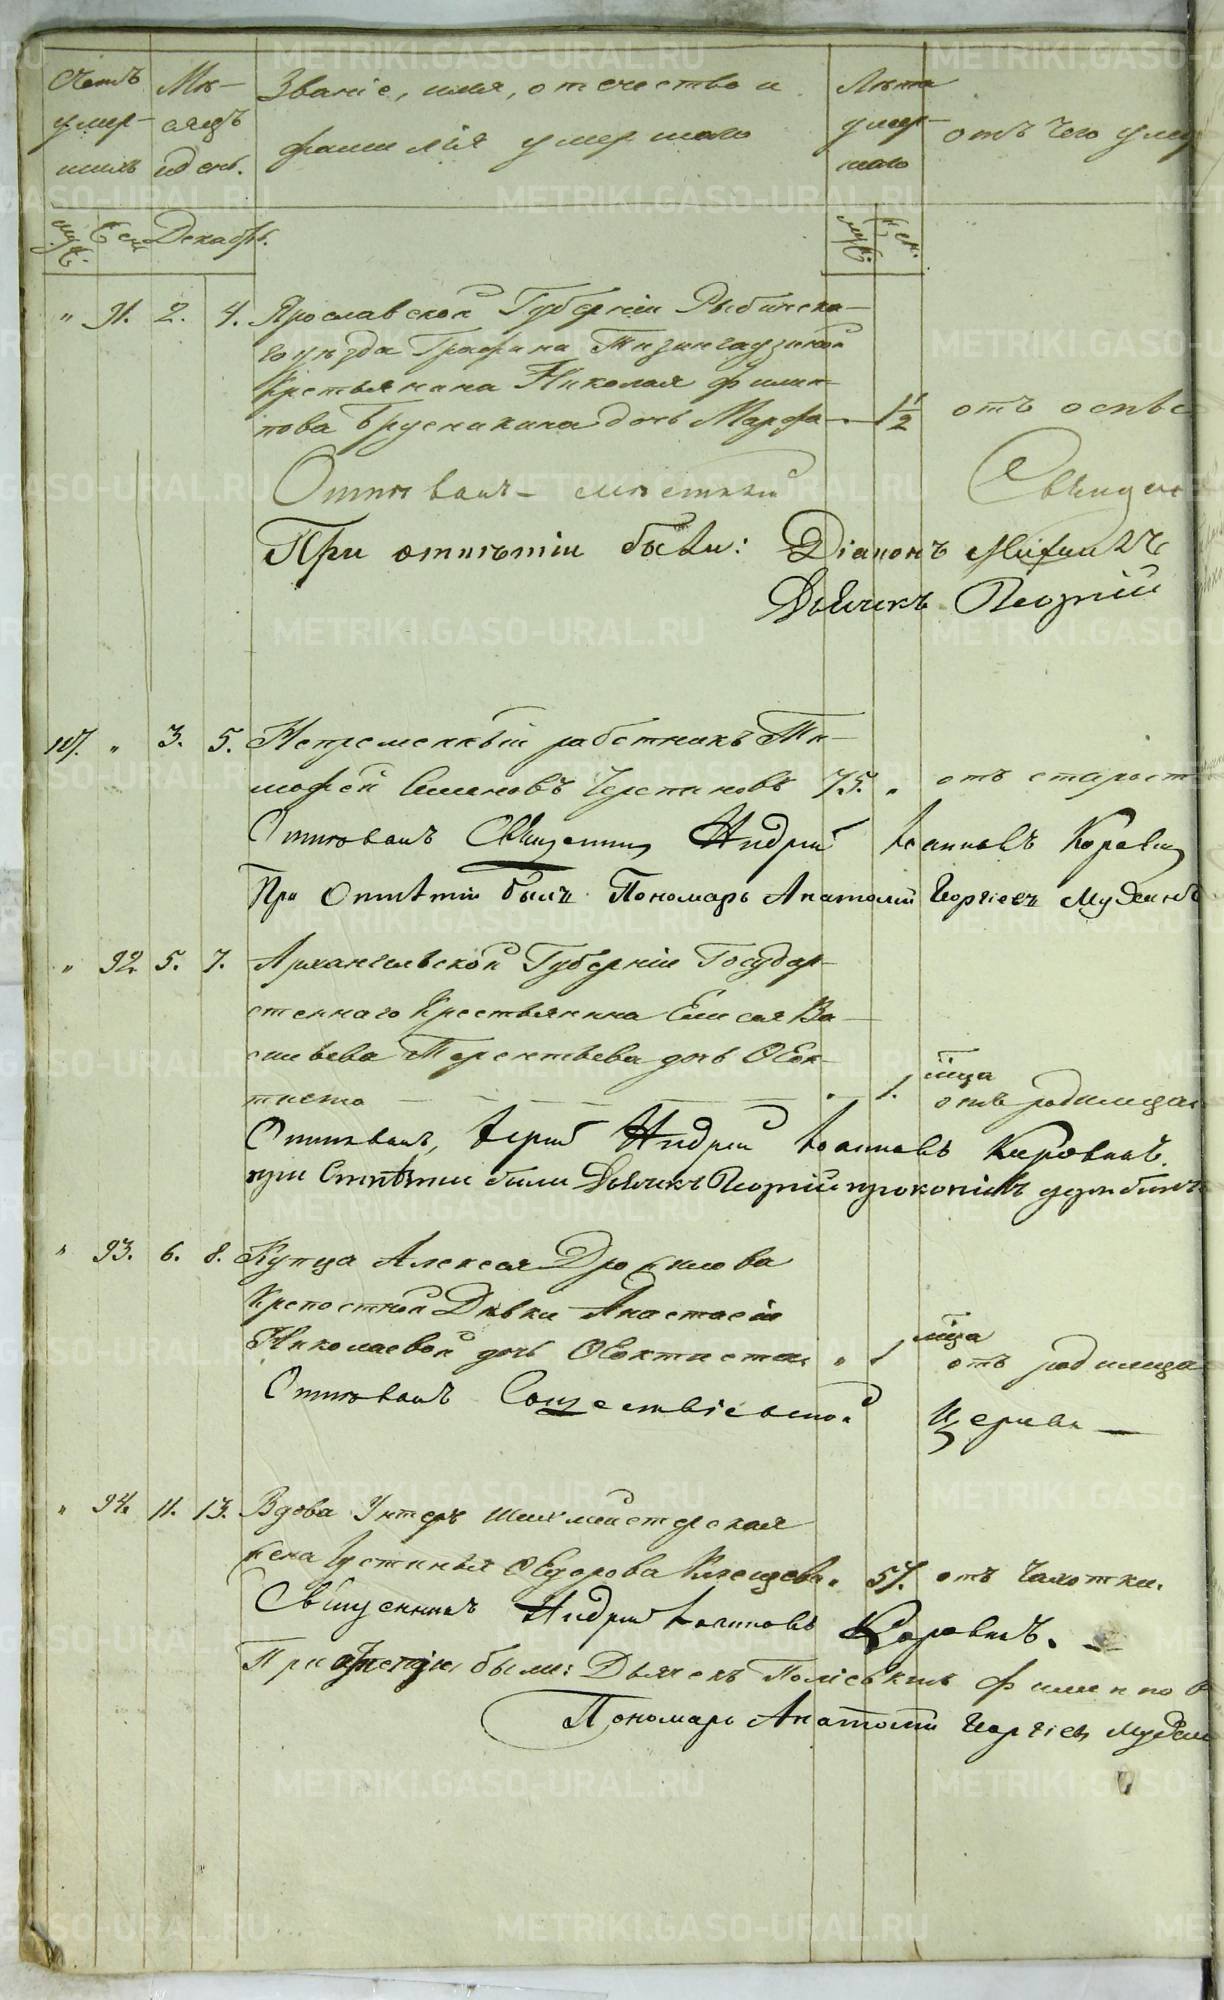 Счетъ умер-шихъ
Мѣ-сяцъ и день.
Званіе, имя, отчество и
фамилія умершаго
Лѣта умер-шаго
отъ чего умер
муж. жен. Декабрь.
муж. жен.
" 91. 2. 4. Ярославской Губерніи Рыбинска-
го уѣзда Графина Тизингаузиной
Крестьянина Николая Филип-
пова Брусникина дочь Марфа — 1 1/2 отъ оспы
Отпѣвалъ мѣстный Священ
При отпѣтіи были: Діаконъ
Дьячекъ Георгій
107. " 3. 5. Непременный работникъ Ти-
мофей Семеновъ Черепановъ 75. " отъ старост
Отпѣвалъ Священник Андрей Іоанновъ Коровин
При Отпѣтіи былъ Пономарь Анатолій Георгіевъ
" 92. 5. 7. Архангельской Губерніи Государ-
ственнаго Крестьянина Елисея Ва-
сильева Терентьева дочь Ѳеок-
тиста " 1. мѣца отъ родимца
Отпѣвалъ Іерей Андрей Іоанновъ Коровинъ.
при Отпѣтіи были Дьячекъ Георгій
" 93. 6. 8. Купца Алексея
Крепостной Дѣвки Анастасіи
Николаевой дочь Ѳеоктиста " 1 мѣца отъ родимца
Отпѣвалъ Сошествіевской Церкви —
" 94. 11. 13. Вдова Унтеръ Шихмейстерская
жена Устинья Ѳедорова Клещева " 57. отъ Чахотки.
Священникъ Андрей Іоанновъ Коровинъ.
При отпетіи были: Дьячекъ Филиппо
Пономарь Анатолій Георгіевъ
METRIKI.GASO-URAL.RU